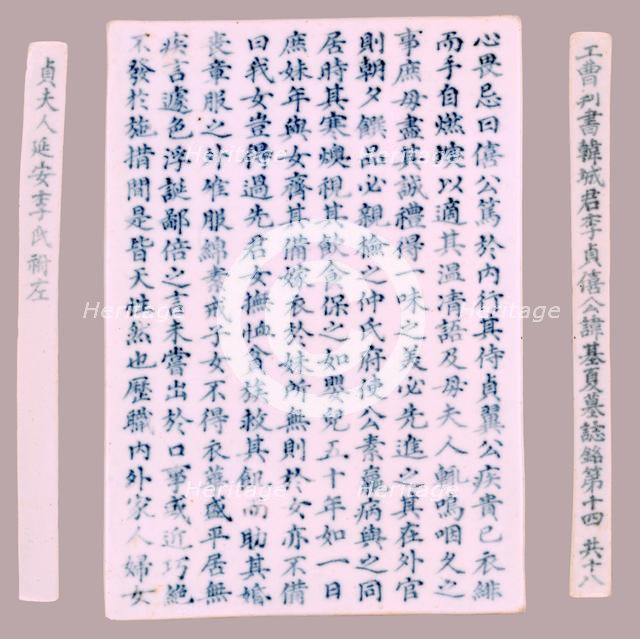 工曹判書韓城君李貞僖公諱基夏墓誌銘第十四 共十八
心畏忌曰僖公篤於內行其侍貞翼公疾貴已衣緋
而手自燃堗以適其温凊語及母夫人輒嗚咽久之
事庶母盡其誠禮得一味之美必先進之其在外官
則朝夕饌品必親檢之仲氏府使公素羸病與之同
居時其寒燠視其飮食保之如嬰兒五十年如一日
庶妹年與女齊其備嫁衣於妹所無則於女亦不備
曰我女豈得過先君女撫恤貧族救其飢而助其婚
喪章服之外惟服綿素戒子女不得衣華盛平居無
疾言遽色浮誕鄙倍之言未嘗出於口事或近巧絕
不發於施措間是皆天性然也歷職內外家人婦女
貞夫人延安李氏祔左
Heritage
Heritage
Heritage
Heritage
Heritage
Heritage